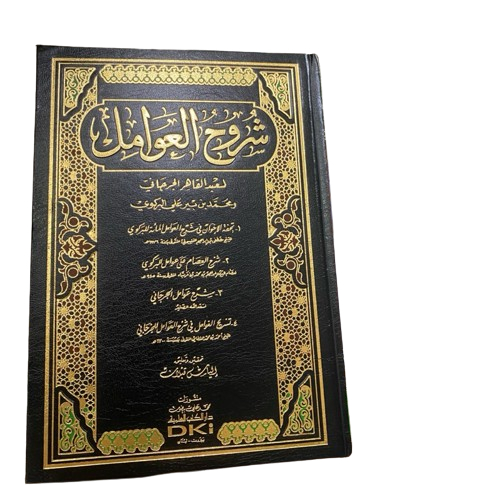 شروح العوامل
لعبد القاهر الجرجاني
ومحمد بن بير علي البركوي
١. تحفة الإخوان في شرح العوامل المائة للبركوي
٢. شرح العصام على عوامل البركوي
٣. شرح عوامل الجرجاني
سعد الله الصغير
٤. تسريح الغوامل في شرح العوامل للجرجاني
تحقيق وتعليق
إلياس قبلان
منشورات
محمد علي بيضون
دار الكتب العلمية
DKi
بيروت - لبنان